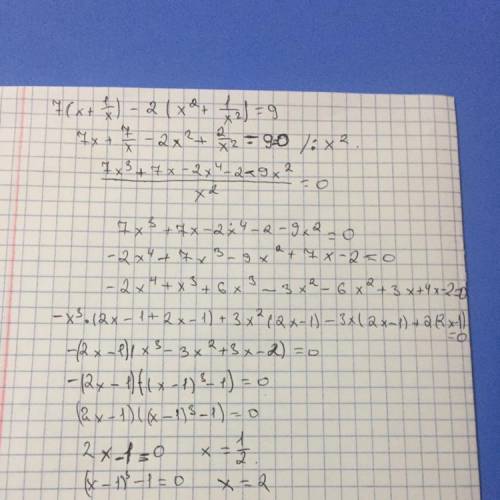 7(x + 1/x) - 2(x² + 1/x²) = 9
7x + 7/x - 2x² + 2/x² = 9=0 /: x².
(7x³ + 7x - 2x⁴ - 2 - 9x²)/x² = 0
7x³ + 7x - 2x⁴ - 2 - 9x² = 0
-2x⁴ + 7x³ - 9x² + 7x - 2 = 0
-2x⁴ + x³ + 6x³ - 3x² - 6x² + 3x + 4x - 2=0
-x³·(2x - 1 + 2x - 1) + 3x²(2x-1) - 3x(2x-1) + 2(2x-1) = 0
-(2x-1)(x³ - 3x² + 3x - 2) = 0
-(2x-1)((x-1)³ - 1) = 0
(2x-1)((x-1)³ - 1) = 0
2x - 1 = 0 x = 1/2.
(x-1)³ - 1 = 0 x = 2